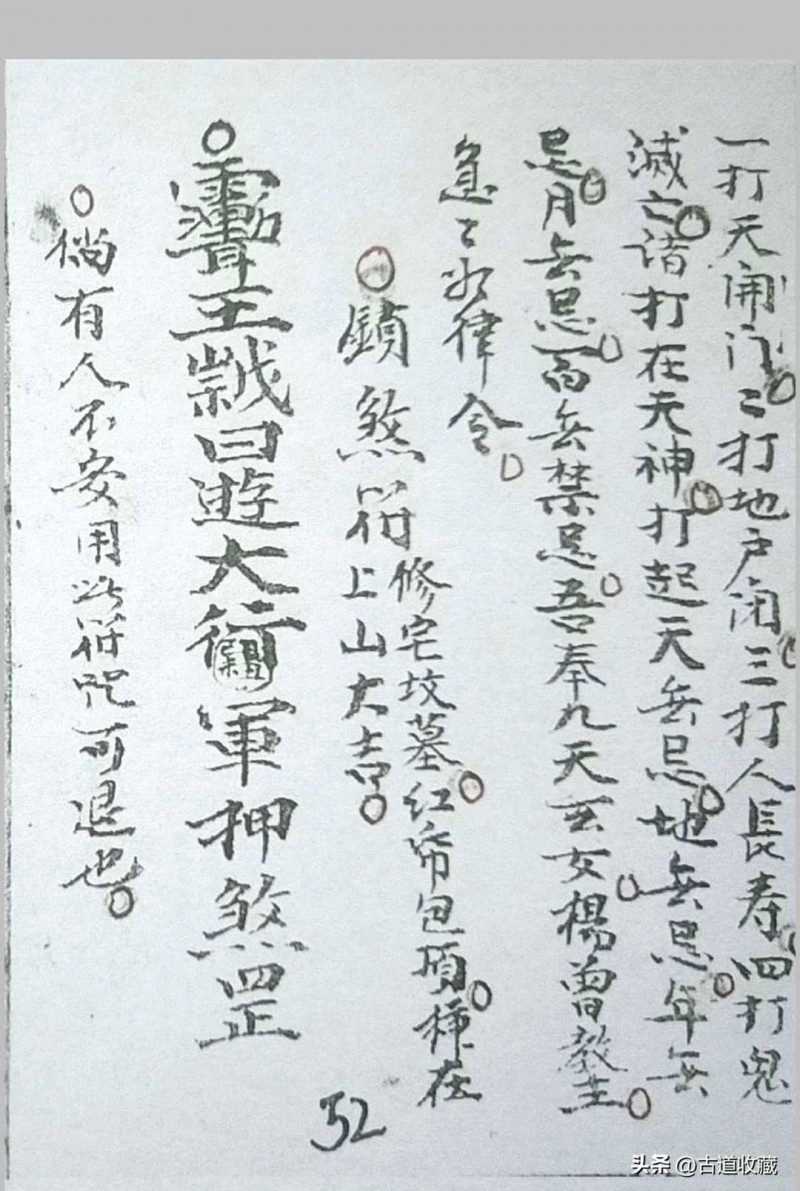 一打天開门二打地户闭三打人長寿四打鬼
滅亡诸打在天神打起天無忌地無忌年無
忌月無忌百無禁忌吾奉九天玄女楊曾教主
急々如律令
鎖煞符
修宅坟墓红布包項種在
上山大吉
王 曰遊大行軍押煞罡
倘有人不安用此符咒可退也
52
头条 @古道收藏